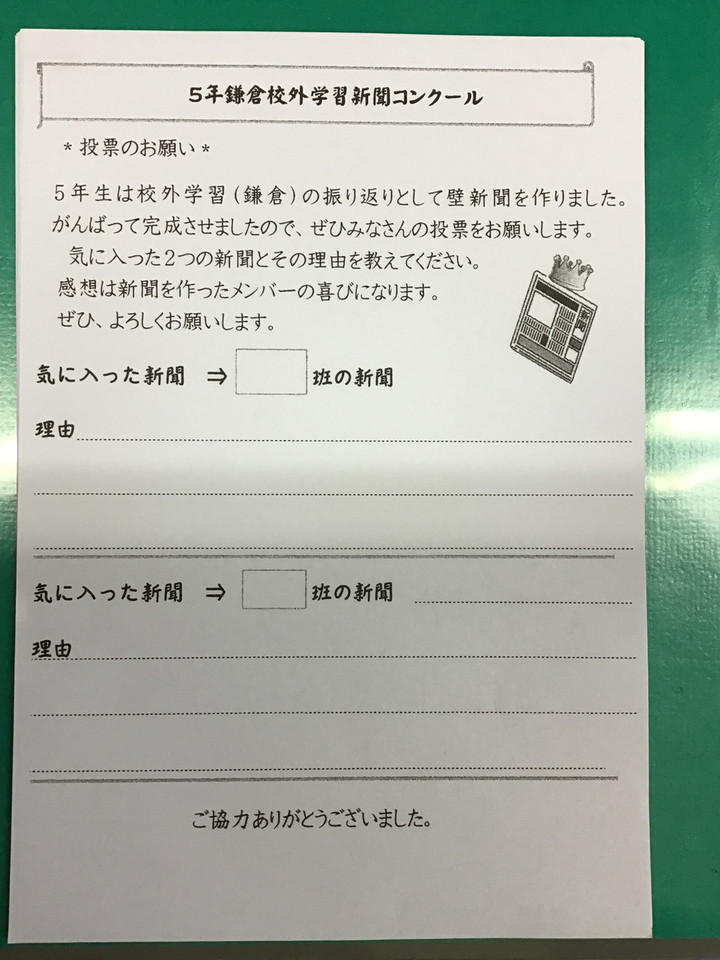 5年鎌倉校外学習新聞コンクール
*投票のお願い*
5年生は校外学習(鎌倉)の振り返りとして壁新聞を作りました。
がんばって完成させましたので、ぜひみなさんの投票をお願いします。
気に入った2つの新聞とその理由を教えてください。
感想は新聞を作ったメンバーの喜びになります。
ぜひ、よろしくお願いします。
新聞
気に入った新聞 ⇒ 班の新聞
理由
気に入った新聞 ⇒ 班の新聞
理由
ご協力ありがとうございました。